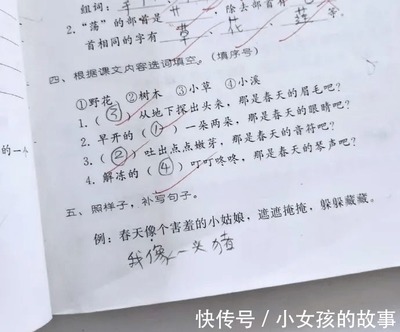 组词:
2.“荡”的部首是 艹,除去部首有
首相同的字有 草、花、莲 等。
四、根据课文内容选词填空。(填序号)
①野花 ②树木 ③小草 ④小溪
1.(③)从地下探出头来,那是春天的眉毛吧?
2.早开的(①)一朵两朵,那是春天的眼睛吧?
3.(②)吐出点点嫩芽,那是春天的音符吧?
4.解冻的(④)叮叮咚咚,那是春天的琴声吧?
的一
五、照样子,补写句子。
例:春天像个害羞的小姑娘,遮遮掩掩,躲躲藏藏。
我像一头猪
快传号/小女孩的故事